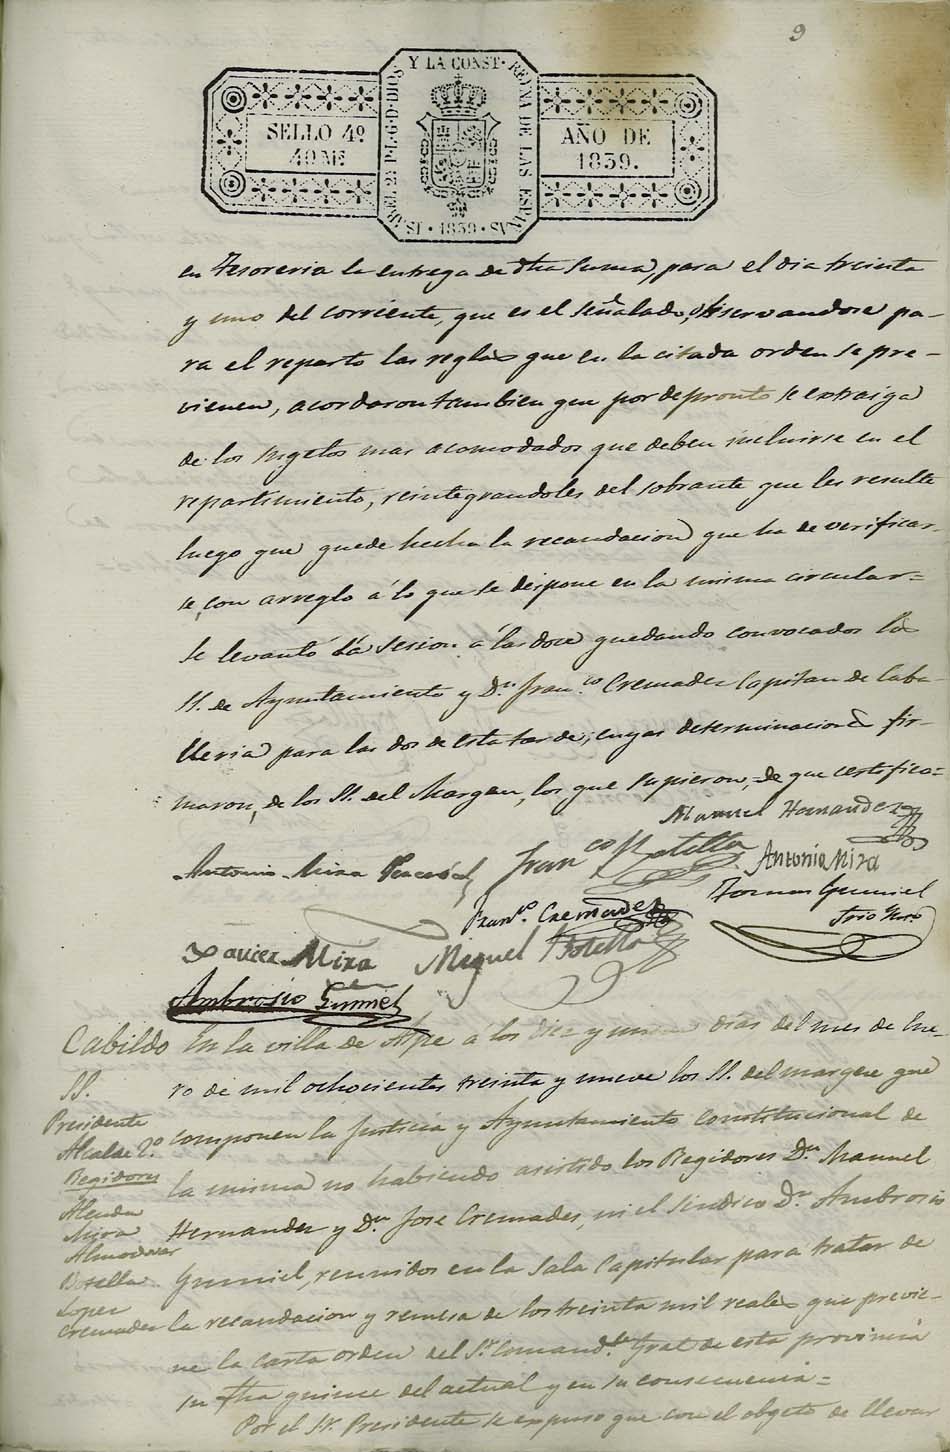 9
SELLO 4º
40 Ms
ISABEL 2ª P. L. G. D. DIOS Y LA CONST. REYNA DE LAS ESPAÑAS
1839
AÑO DE
1839.
en Tesoreria la entrega de dha suma, para el dia treinta
y uno del corriente, que es el señalado, observandose pa-
ra el reparto las reglas que en la citada orden se pre-
vienen, acordaron tambien que por de pronto se extraiga
de los sugetos mas acomodados que deben incluirse en el
repartimiento, reintegrandoles del sobrante que les resulte
luego que quede hecha la recaudacion que ha de verificar-
se, con arreglo á lo que se dispone en la misma circular=
Se levantó la sesion á las doce quedando convocados los
SS. de Ayuntamiento y Dn. Franco. Cremades Capitan de Caba-
lleria para las dos de esta tarde; cuyas determinaciones fir-
maron, de los SS. del Margen, los que supieron, de que certifico=
Manuel Hernandez
Antonio Mira Franco Botella Antonio Mira
Franco. Cremades Tomas Gumiel
Srio Ynto
Xavier Mira Miguel Botella
Ambrosio Gumiel
Cabildo En la villa de Aspe á los diez y nueve días del mes de Ene-
SS. ro de mil ochocientos treinta y nueve los SS. del margen que
Presidente
Alcalde 2º componen la Justicia y Ayuntamiento constitucional de
Regidores la misma no habiendo asistido los Regidores Dn. Manuel
Alenda
Mira Hernandez y Dn. Jose Cremades, ni el Sindico Dn. Ambrosio
Almodovar
Botella Gumiel, reunidos en la Sala Capitular para tratar de
Lopez
Cremades la recaudacion y remesa de los treinta mil reales que previe-
ne la carta orden del Sr. Comandte. Gral de esta provincia
su fha quince del actual y en su consecuencia=
Por el Sr. Presidente se expuso que con el obgeto de llevar